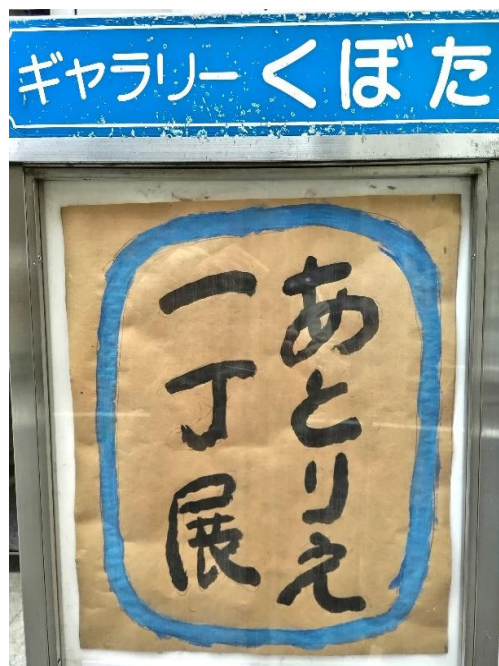 ギャラリーくぼた
あとりえ
一丁展